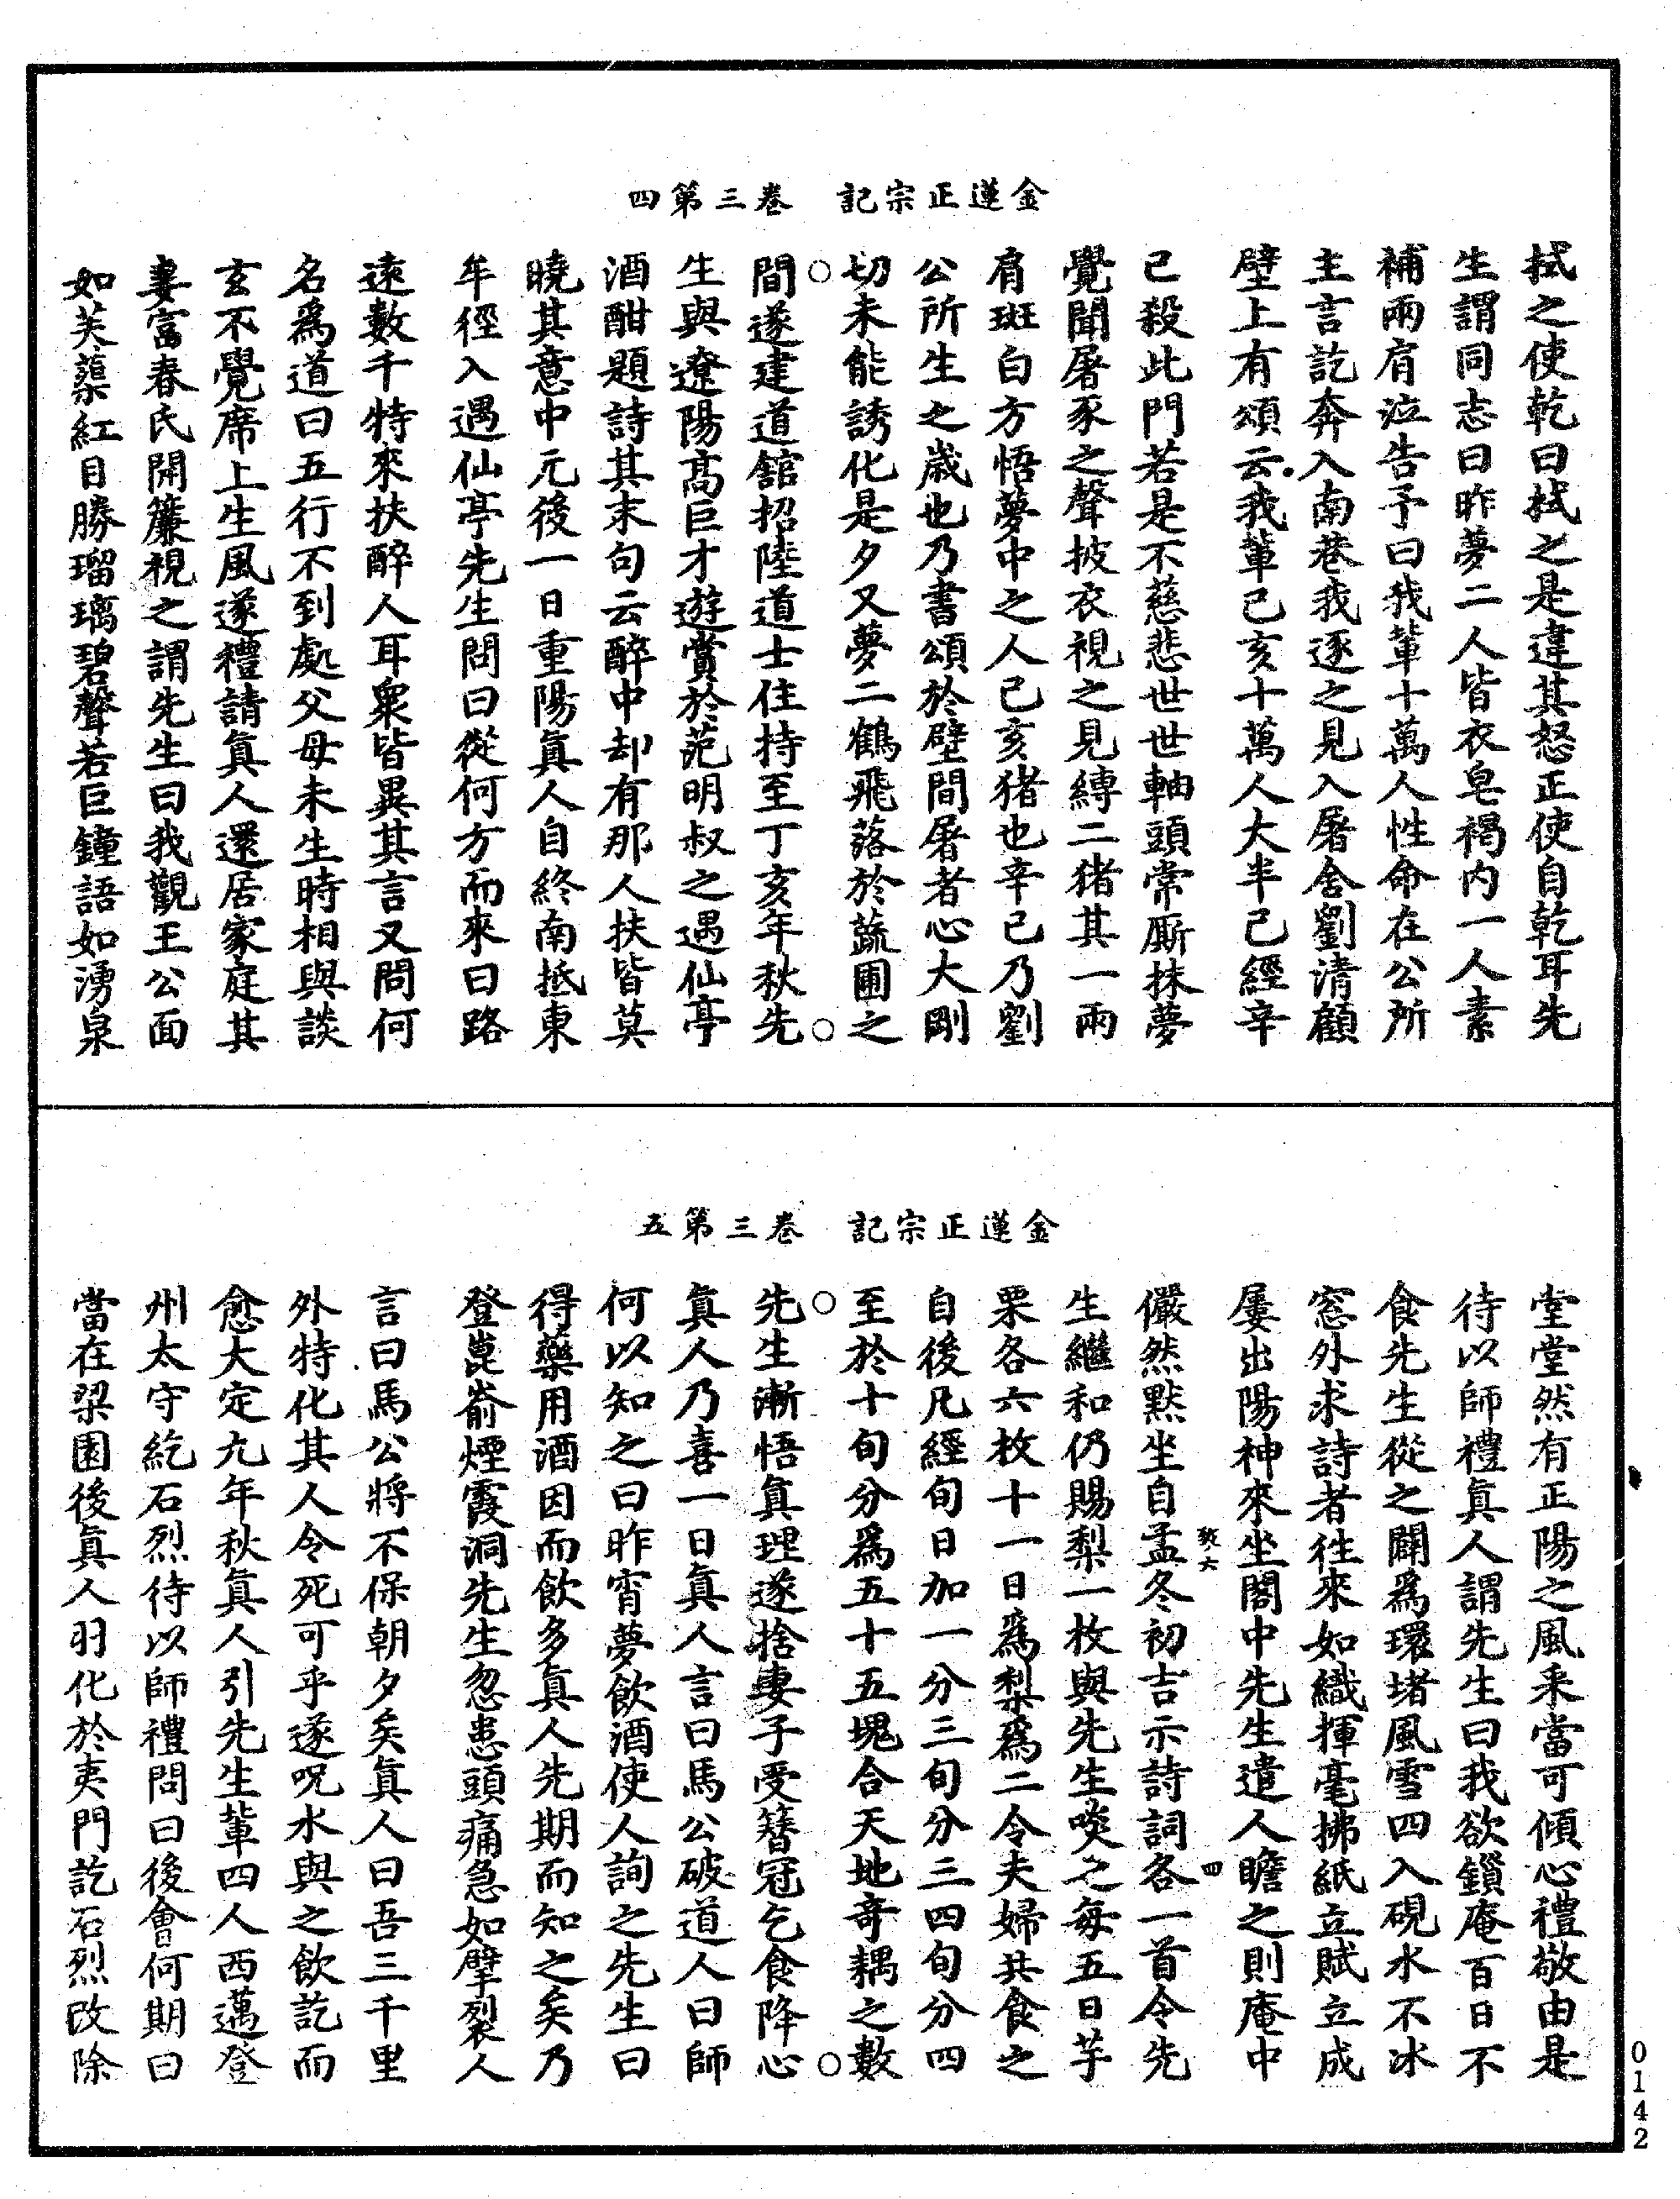 金蓮正宗記　卷三第四
拭之使乾曰拭之是違其怒正使自乾耳先
生謂同志曰昨夢二人皆衣皂褐內一人素
補兩肩泣告予曰我輩十萬人性命在公所
主言訖奔入南巷我逐之見入屠舍劉清顧
壁上有頌云我輩己亥十萬人大半已經辛
已殺此門若是不慈悲世世軸頭常廝抹夢
覺聞屠豕之聲披衣視之見縛二猪其一兩
肩斑白方悟夢中之人己亥猪也辛巳乃劉
公所生之歲也乃書頌於壁間屠者心大剛
切未能誘化是夕又夢二鶴飛落於蔬圃之
間遂建道館招陸道士住持至丁亥年秋先
生與遼陽高巨才遊賞於范明叔之遇仙亭
酒酣題詩其末句云醉中却有那人扶皆莫
曉其意中元後一日重陽真人自終南抵東
牟徑入遇仙亭先生問曰從何方而來曰路
遠數千特來扶醉人耳衆皆異其言又問何
名為道曰五行不到處父母未生時相與談
玄不覺席上生風遂禮請真人還居家庭其
妻富春氏開簾視之謂先生曰我觀王公面
如芙蕖紅目勝瑠璃碧聲若巨鐘語如湧泉
金蓮正宗記　卷三第五
堂堂然有正陽之風采當可傾心禮敬由是
待以師禮真人謂先生曰我欲鎖庵百日不
食先生從之闢為環堵風雪四入硯水不冰
窓外求詩者往來如織揮毫拂紙立賦立成
屢出陽神來坐閣中先生遣人瞻之則庵中
儼然默坐自孟冬初吉示詩詞各一首令先
生繼和仍賜梨一枚與先生啖之每五日芋
栗各六枚十一日為梨為二令夫婦共食之
自後凡經旬日加一分三旬分三四旬分四
至於十旬分為五十五塊合天地奇耦之數
先生漸悟真理遂捨妻子受簪冠乞食降心
真人乃喜一日真人言曰馬公破道人曰師
何以知之曰昨宵夢飲酒使人詢之先生曰
得藥用酒因而飲多真人先期而知之矣乃
登崑嵛煙霞洞先生忽患頭痛急如擘裂人
言曰馬公將不保朝夕矣真人曰吾三千里
外特化其人令死可乎遂呪水與之飲訖而
愈大定九年秋真人引先生輩四人西邁登
州太守紇石烈待以師禮問曰後會何期曰
當在梁園後真人羽化於夷門訖石烈改除
四
0142